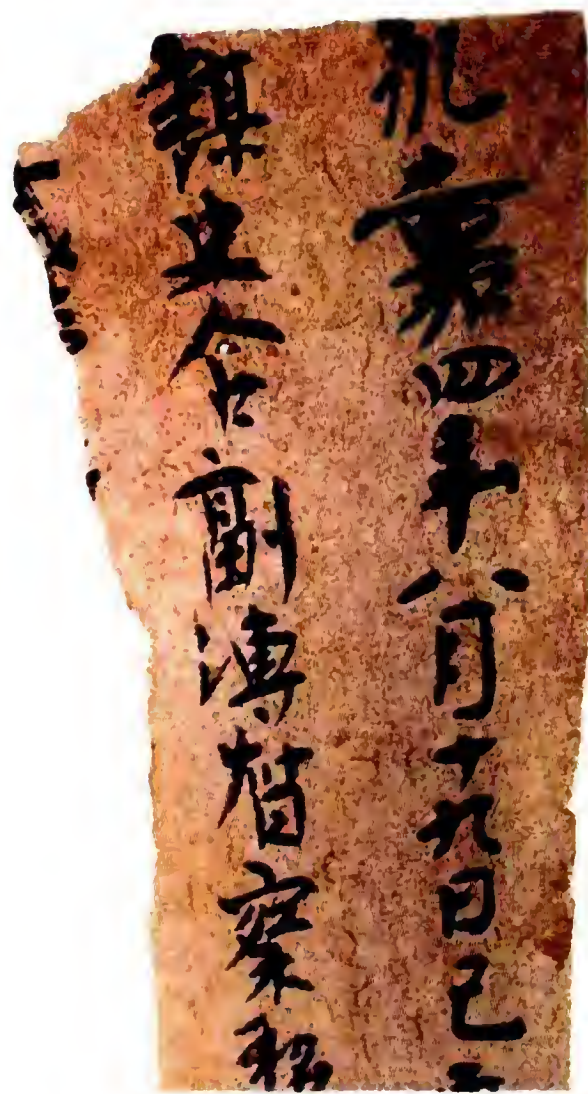 永嘉四年八月十九日己
謀史令副溥督察移